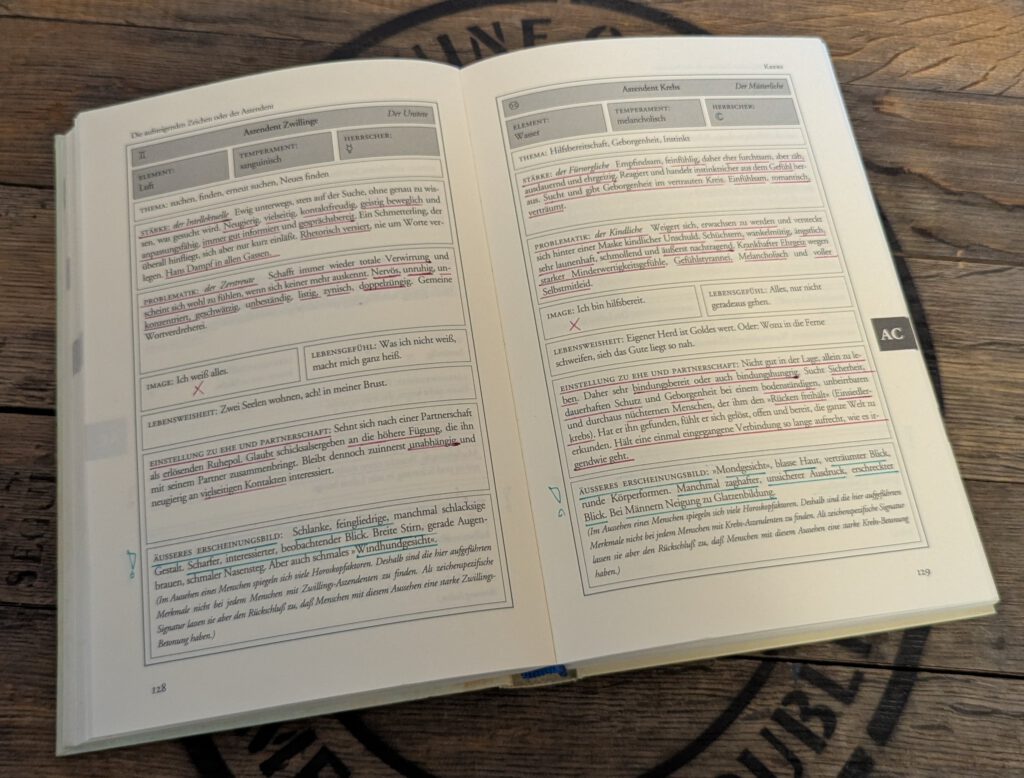 Die aufsteigenden Zeichen oder der Aszendent
♊ Aszendent Zwillinge Der Unstete
ELEMENT: Luft
TEMPERAMENT: sanguinisch
HERRSCHER: ☿
THEMA: suchen, finden, erneut suchen, Neues finden
STÄRKE: der Intellektuelle Ewig unterwegs, stets auf der Suche, ohne genau zu wis-
sen, was gesucht wird. Neugierig, vielseitig, kontaktfreudig, geistig beweglich und
anpassungsfähig, immer gut informiert und gesprächsbereit. Ein Schmetterling, der
überall hinfliegt, sich aber nur kurz einläßt. Rhetorisch versiert, nie um Worte ver-
legen. Hans Dampf in allen Gassen.
PROBLEMATIK: der Zerstreute Schafft immer wieder totale Verwirrung und
scheint sich wohl zu fühlen, wenn sich keiner mehr auskennt. Nervös, unruhig, un-
konzentriert, geschwätzig, unbeständig, listig, zynisch, doppelzüngig. Gemeine
Wortverdreherei.
IMAGE: Ich weiß alles.
LEBENSGEFÜHL: Was ich nicht weiß,
macht mich ganz heiß.
LEBENSWEISHEIT: Zwei Seelen wohnen, ach! in meiner Brust.
EINSTELLUNG ZU EHE UND PARTNERSCHAFT: Sehnt sich nach einer Partnerschaft
als erlösenden Ruhepol. Glaubt schicksalsergeben an die höhere Fügung, die ihn
mit seinem Partner zusammenbringt. Bleibt dennoch zuinnerst unabhängig und
neugierig an vielseitigen Kontakten interessiert.
ÄUSSERES ERSCHEINUNGSBILD: Schlanke, feingliedrige, manchmal schlacksige
Gestalt. Scharfer, interessierter, beobachtender Blick. Breite Stirn, gerade Augen-
brauen, schmaler Nasensteg. Aber auch schmales »Windhundgesicht«.
(Im Aussehen eines Menschen spiegeln sich viele Horoskopfaktoren. Deshalb sind die hier aufgeführten
Merkmale nicht bei jedem Menschen mit Zwillings-Aszendenten zu finden. Als zeichenspezifische
Signatur lassen sie aber den Rückschluß zu, daß Menschen mit diesem Aussehen eine starke Zwillings-
Betonung haben.)
128
KREBS
♋ Aszendent Krebs Der Mütterliche
ELEMENT: Wasser
TEMPERAMENT: melancholisch
HERRSCHER: ☾
THEMA: Hilfsbereitschaft, Geborgenheit, Instinkt
STÄRKE: der Fürsorgliche Empfindsam, feinfühlig, daher eher furchtsam, aber zäh,
ausdauernd und ehrgeizig. Reagiert und handelt instinktsicher aus dem Gefühl her-
aus. Sucht und gibt Geborgenheit im vertrauten Kreis. Einfühlsam, romantisch,
verträumt.
PROBLEMATIK: der Kindliche Weigert sich, erwachsen zu werden und versteckt
sich hinter einer Maske kindlicher Unschuld. Schüchtern, wankelmütig, ängstlich,
sehr launenhaft, schmollend und äußerst nachtragend. Krankhafter Ehrgeiz wegen
starker Minderwertigkeitsgefühle. Gefühlstyrannei. Melancholisch und voller
Selbstmitleid.
IMAGE: Ich bin hilfsbereit.
LEBENSGEFÜHL: Alles, nur nicht
geradeaus gehen.
LEBENSWEISHEIT: Eigener Herd ist Goldes wert. Oder: Wozu in die Ferne
schweifen, sieh das Gute liegt so nah.
EINSTELLUNG ZU EHE UND PARTNERSCHAFT: Nicht gut in der Lage, allein zu le-
ben. Daher sehr bindungsbereit oder auch bindungshungrig. Sucht Sicherheit,
dauerhaften Schutz und Geborgenheit bei einem bodenständigen, unbeirrbaren
und durchaus nüchternen Menschen, der ihm den »Rücken freihält« (Einsiedler-
krebs). Hat er ihn gefunden, fühlt er sich gelöst, offen und bereit, die ganze Welt zu
erkunden. Hält eine einmal eingegangene Verbindung so lange aufrecht, wie es ir-
gendwie geht.
ÄUSSERES ERSCHEINUNGSBILD: »Mondgesicht«, blasse Haut, verträumter Blick,
runde Körperformen. Manchmal zaghafter, unsicherer Ausdruck, erschreckter
Blick. Bei Männern Neigung zu Glatzenbildung.
(Im Aussehen eines Menschen spiegeln sich viele Horoskopfaktoren. Deshalb sind die hier aufgeführten
Merkmale nicht bei jedem Menschen mit Krebs-Aszendenten zu finden. Als zeichenspezifische Signatur
lassen sie aber den Rückschluß zu, daß Menschen mit diesem Aussehen eine starke Krebs-Betonung
haben.)
129
AC